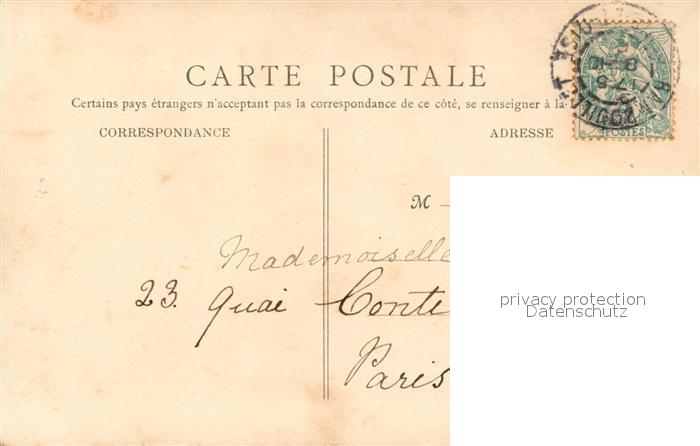 CARTE POSTALE
Certains pays étrangers n'acceptant pas la correspondance de ce côté, se renseigner à la
CORRESPONDANCE
ADRESSE
M
Mademoiselle
23. Quai Conte
Paris
POSTES
privacy protection
Datenschutz